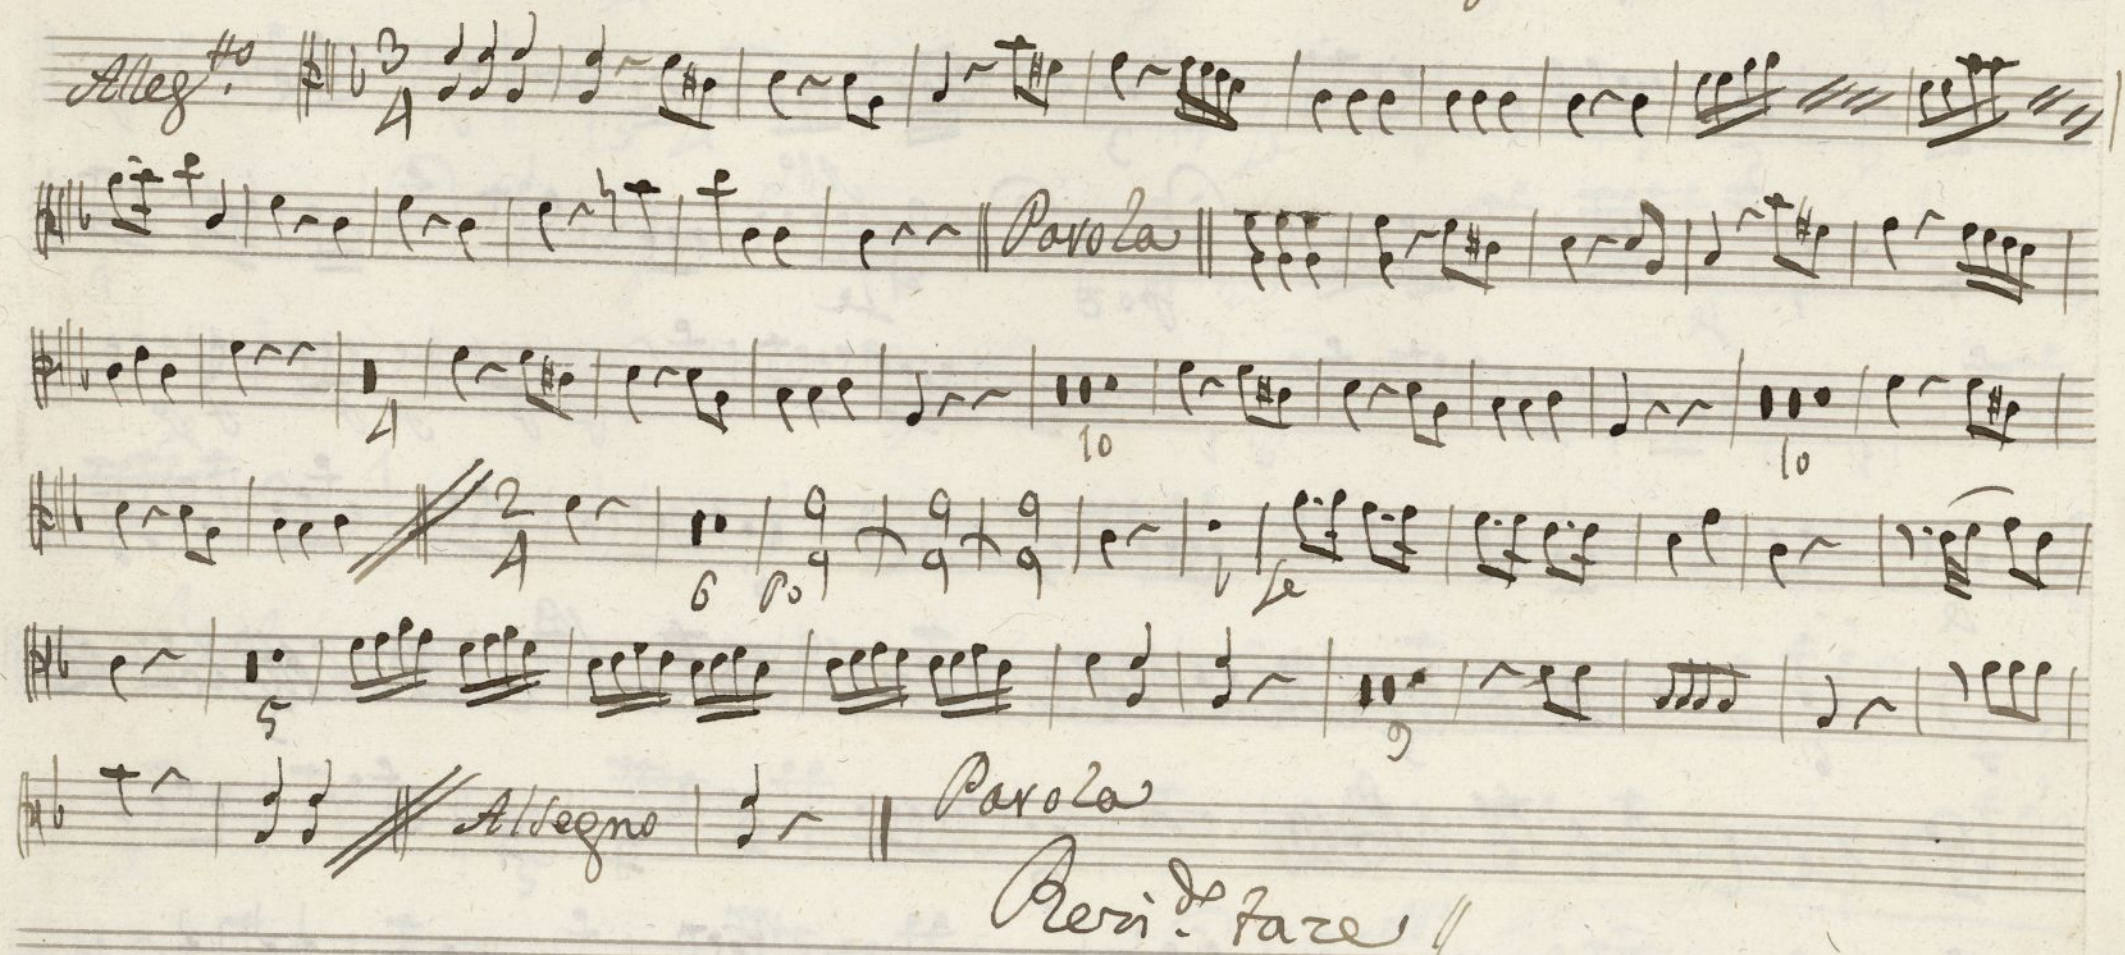 Alleg.tto 3/4
Parola
4 10 10
2/4 6 Po 1 fe
5 9
Alsegno Parola
Reci.do taze //